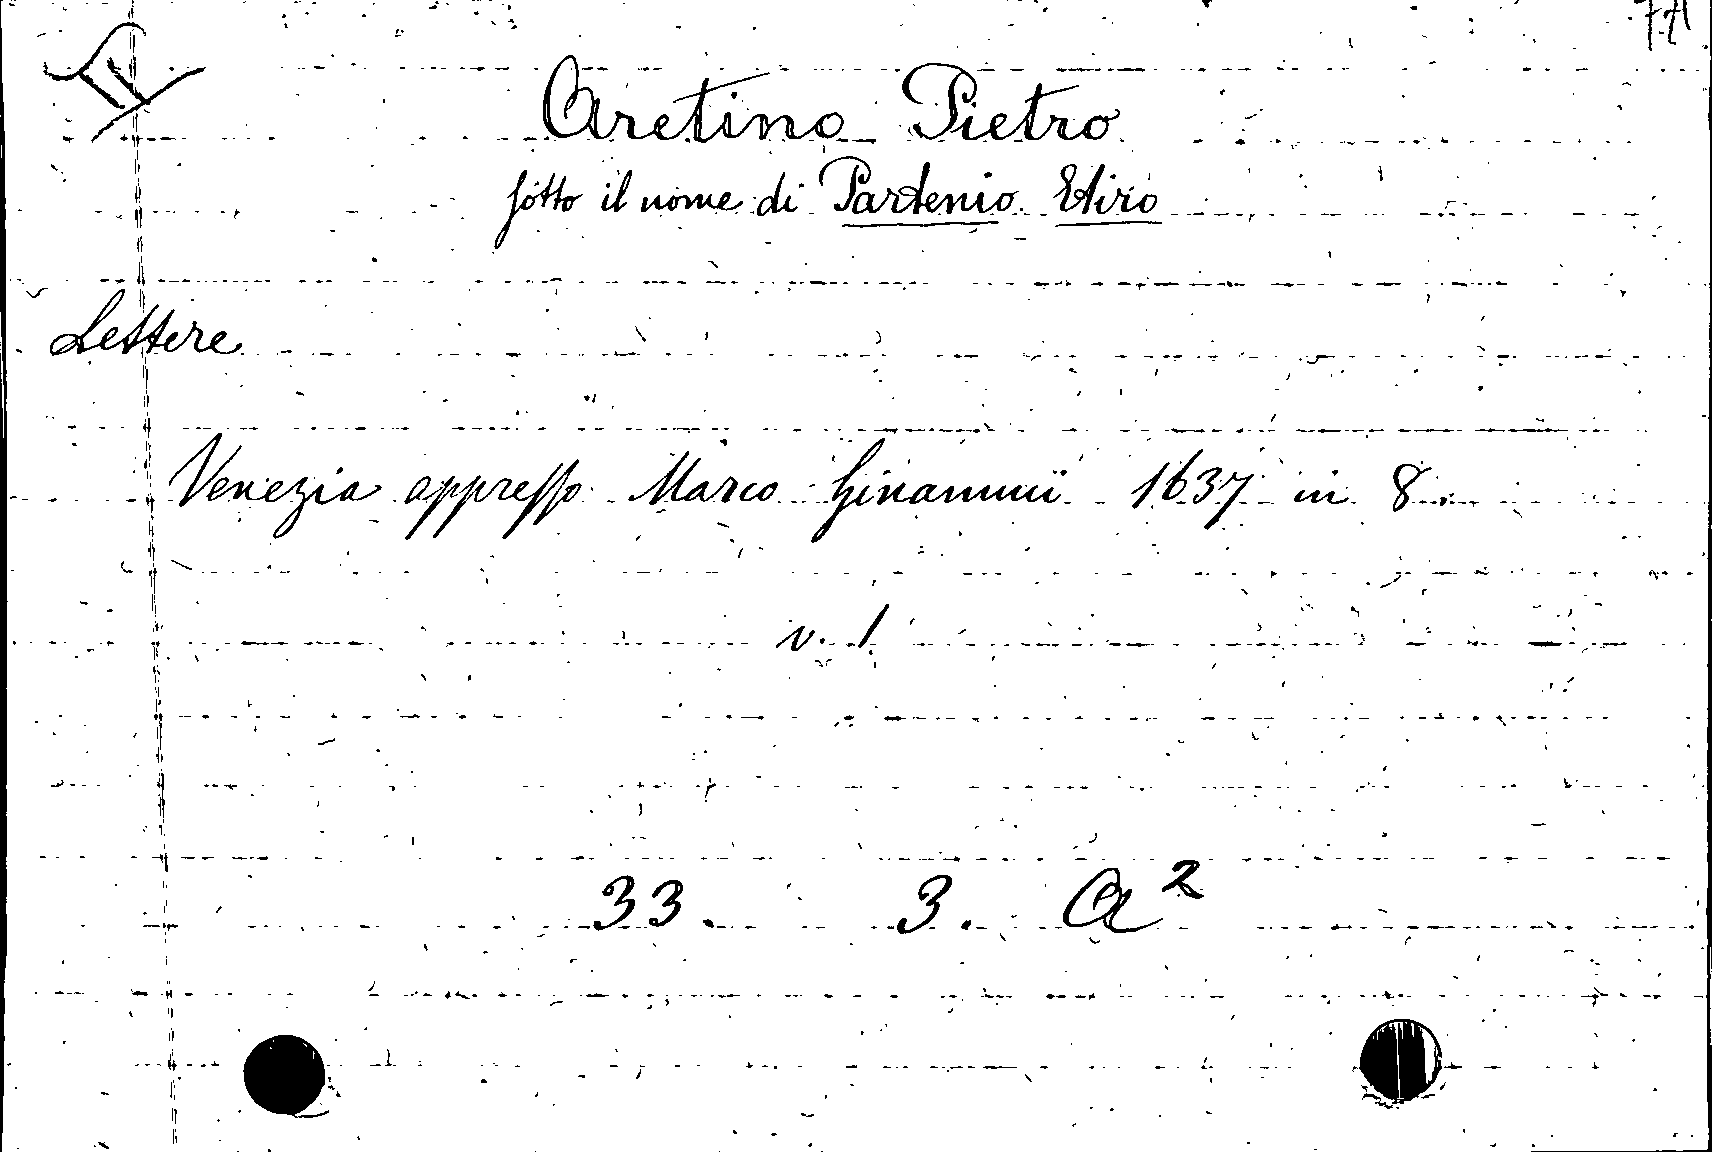 Aretino Pietro
sotto il nome di Partenio Etiro
Lettere
Venezia appresso Marco Ginammi 1637 in 8.
v. 1
33. 3. A²